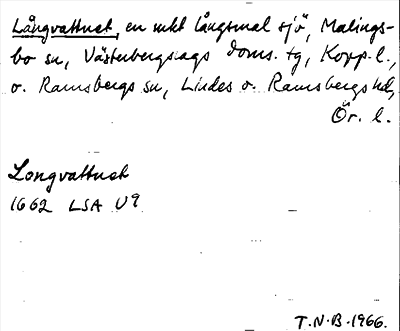 Långvattnet, en mkt långsmal sjö, Malings-
bo sn, Västerbergslags doms. tg, Kopp. l.,
o. Ramsbergs sn, Lindes o. Ramsbergs hd,
Ör. l.
Longvattnet
1662 LSA U9
T.N.B. 1966.